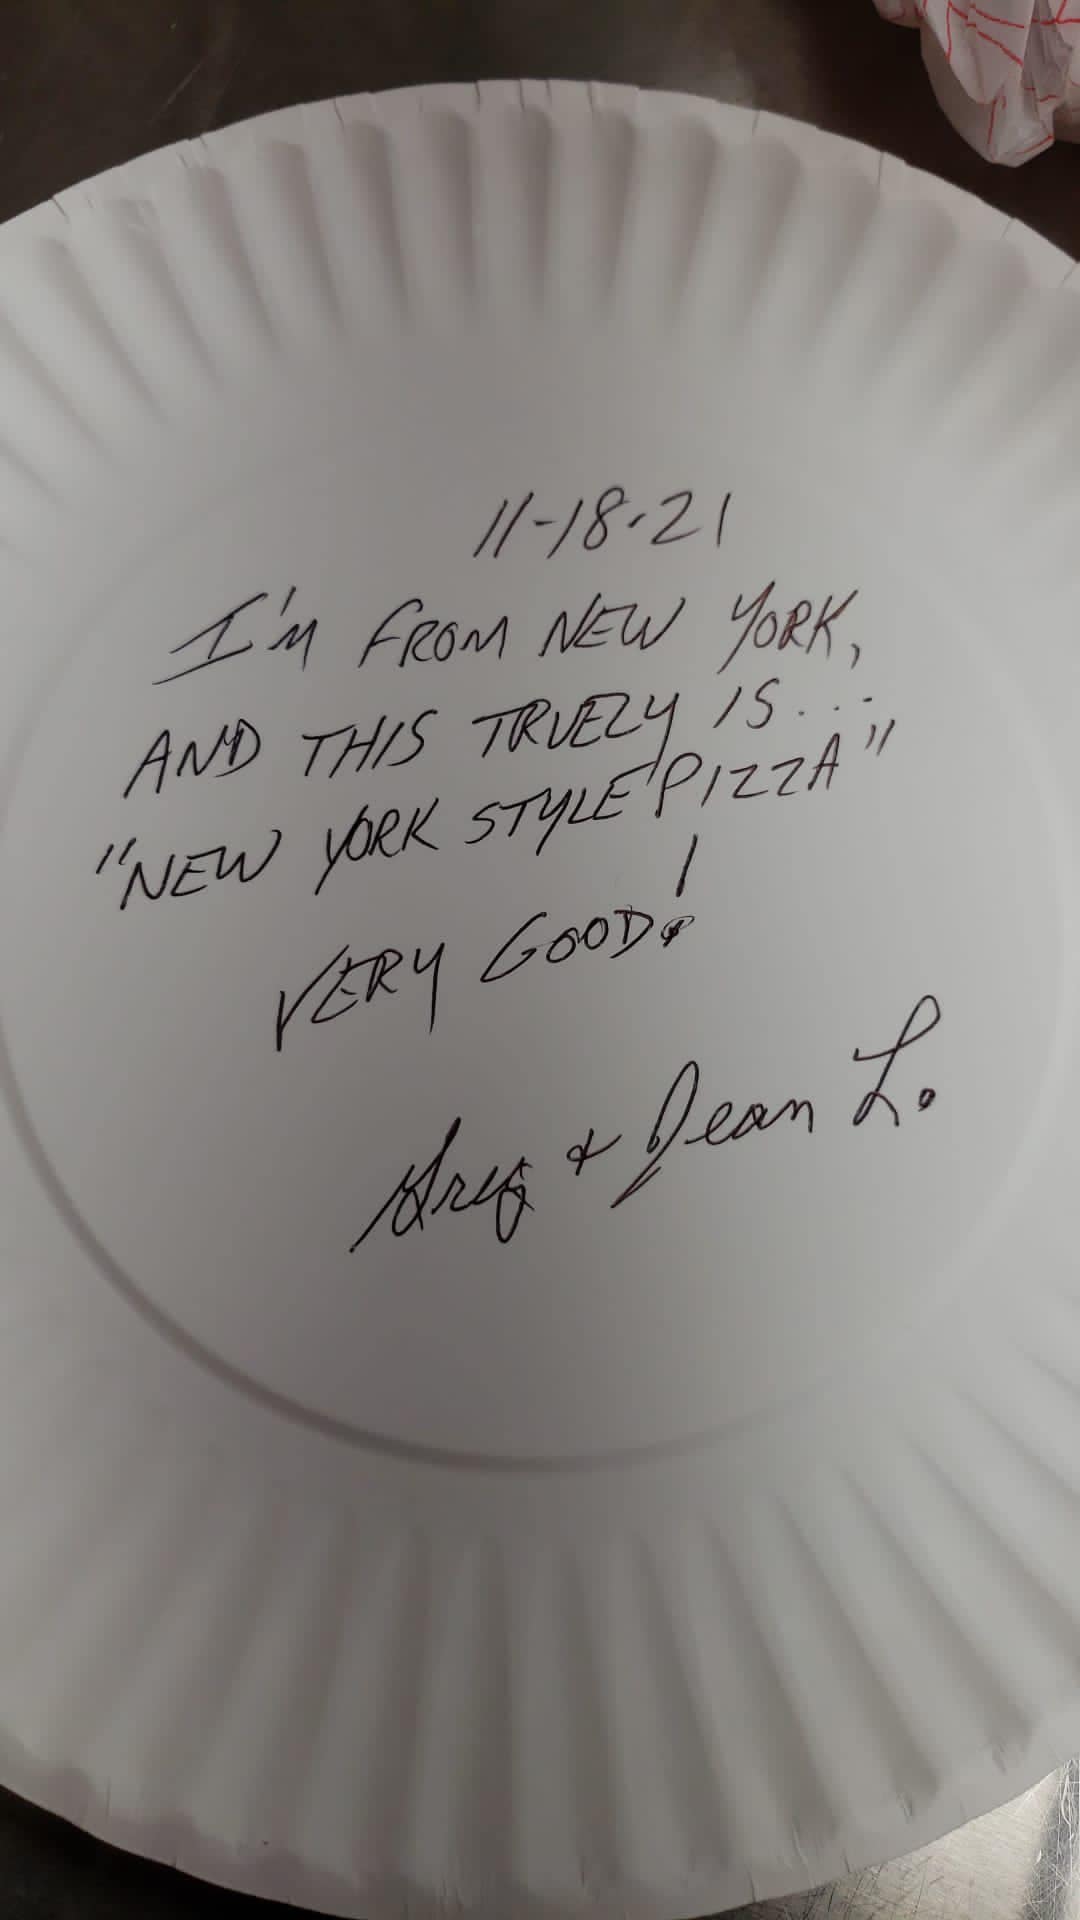 11-18-21
I'M FROM NEW YORK,
AND THIS TRUELY IS...
"NEW YORK STYLE PIZZA"
VERY GOOD!
Greg + Jean L.